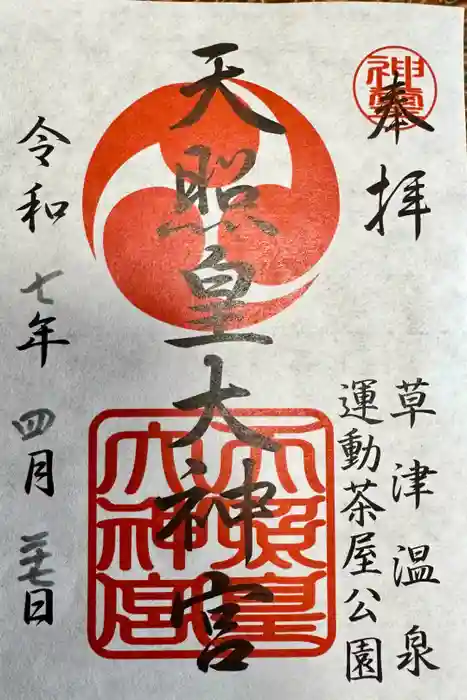 奉拝
草津温泉
運動茶屋公園
天照皇大神宮
天照皇
大神宮
令和七年四月廿七日